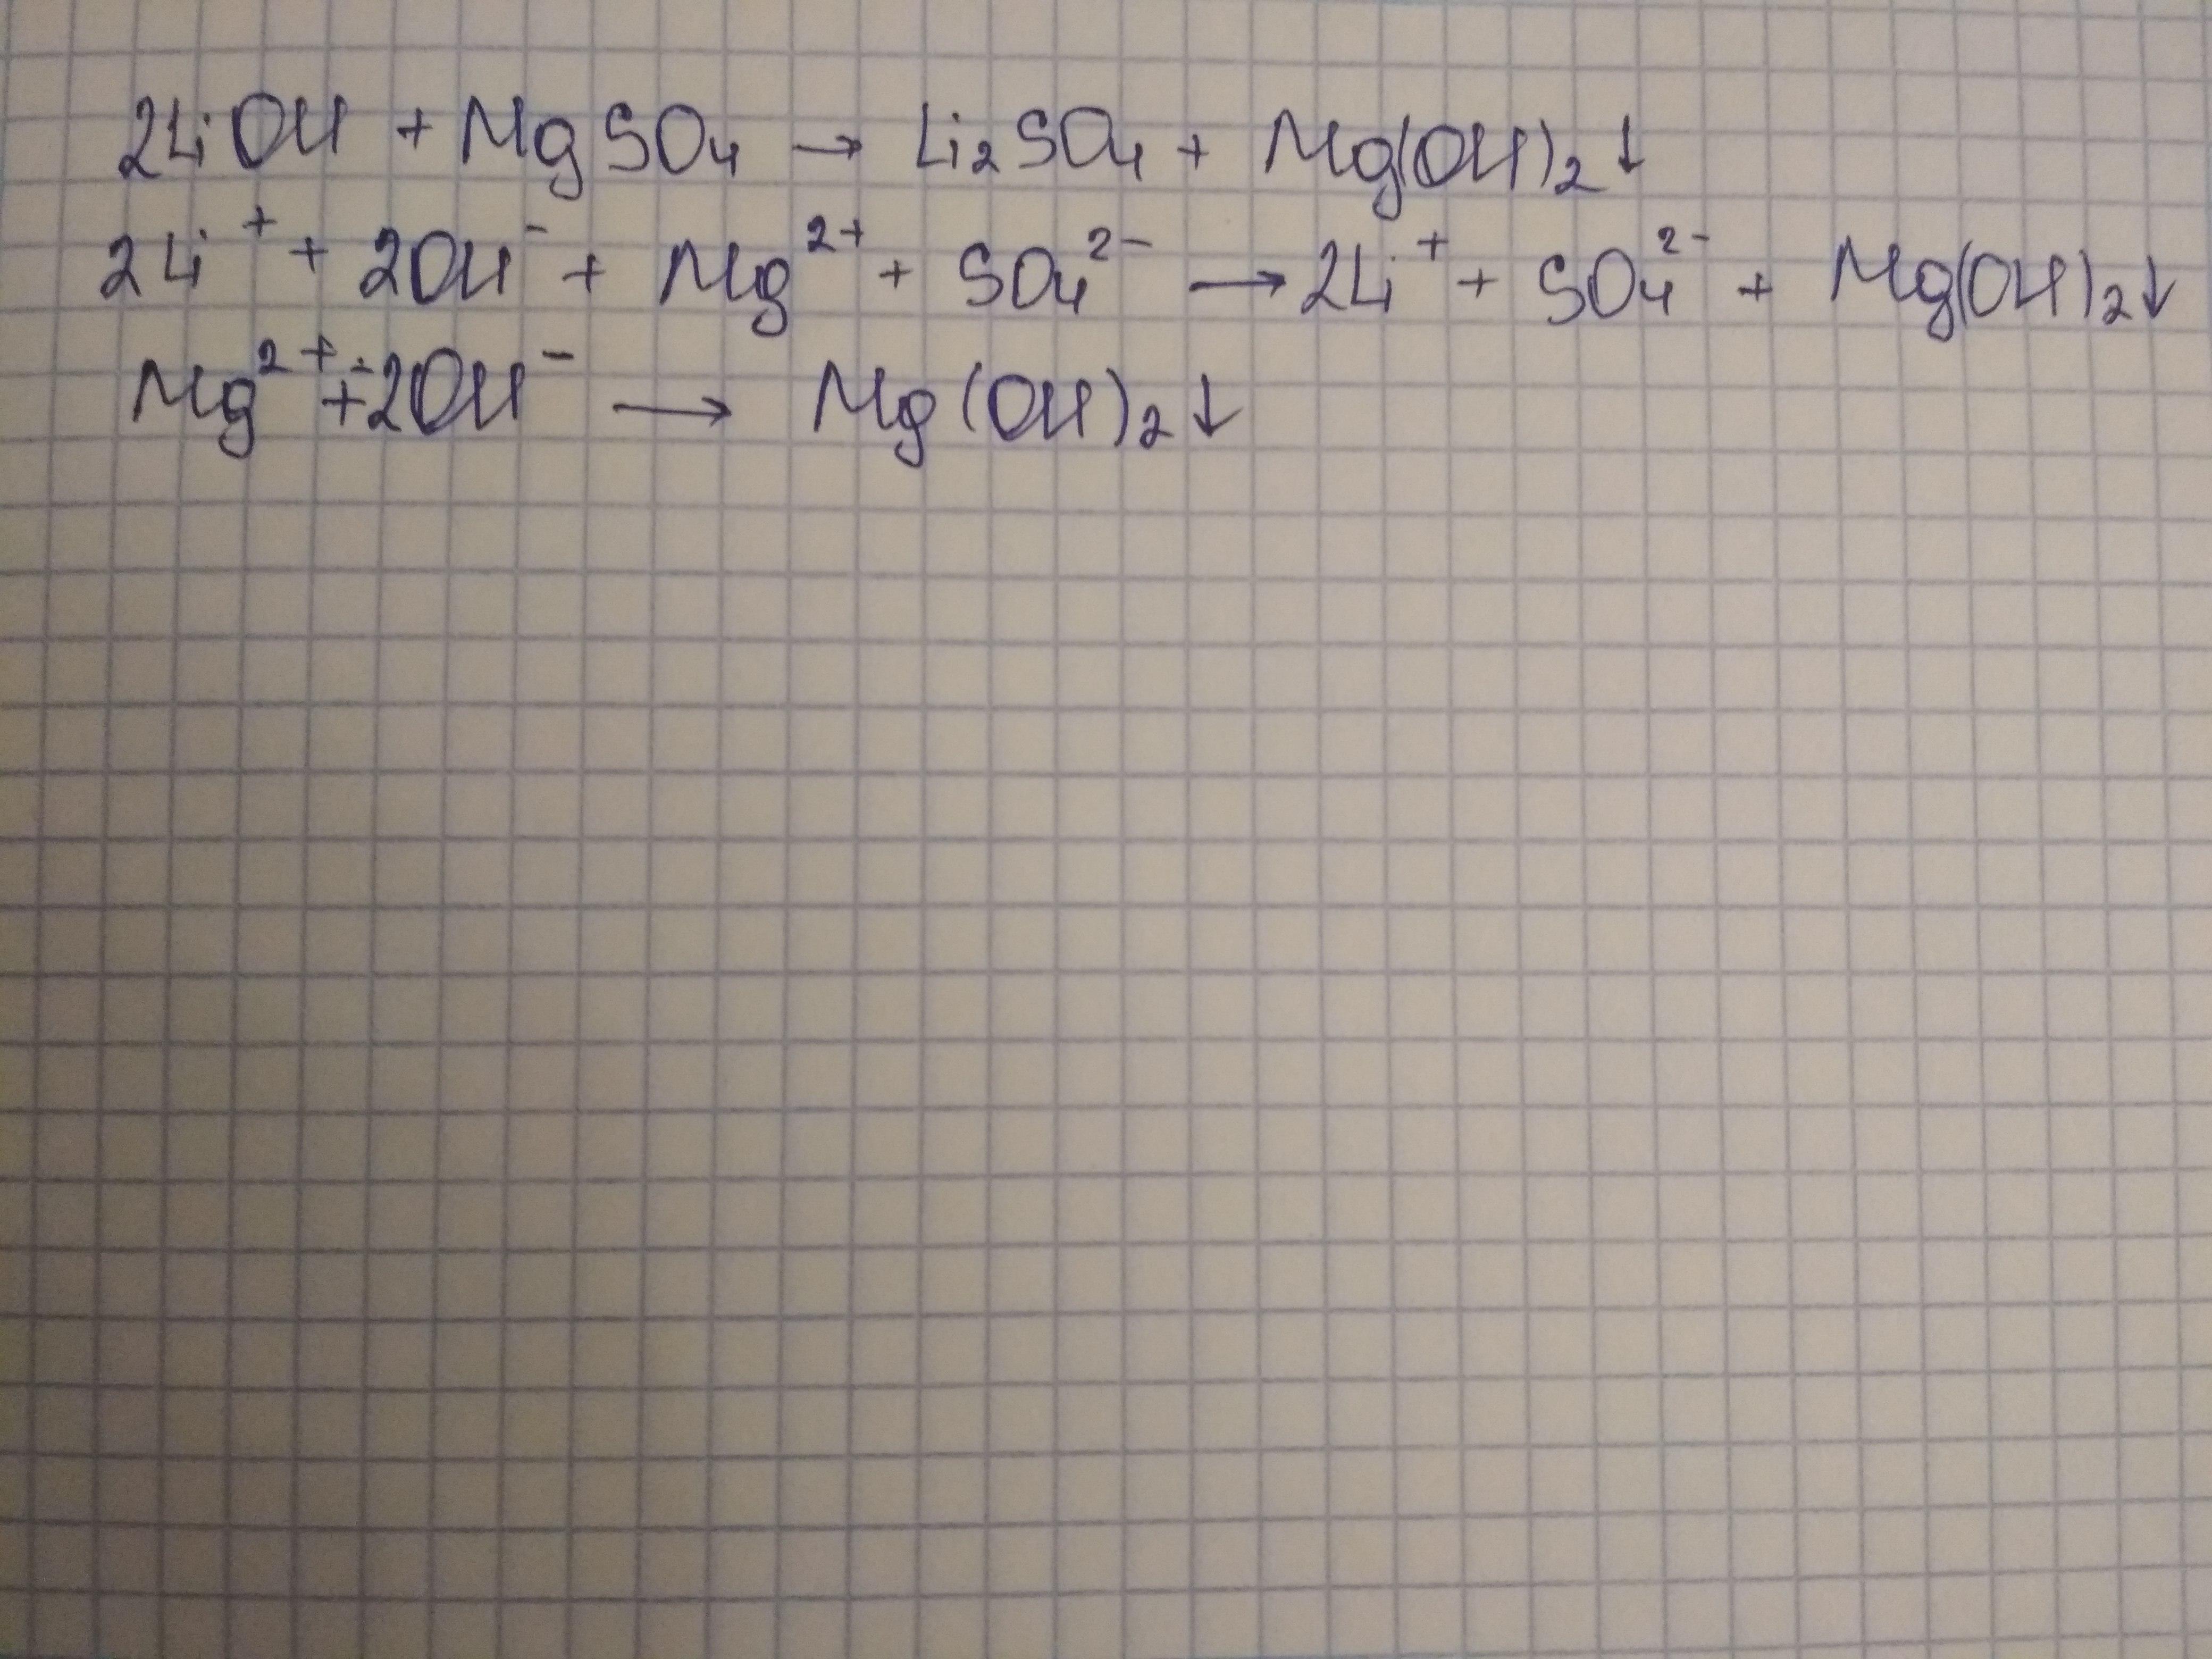 2LiOH + MgSO₄ → Li₂SO₄ + Mg(OH)₂↓
2Li⁺ + 2OH⁻ + Mg²⁺ + SO₄²⁻ → 2Li⁺ + SO₄²⁻ + Mg(OH)₂↓
Mg²⁺ + 2OH⁻ → Mg(OH)₂↓